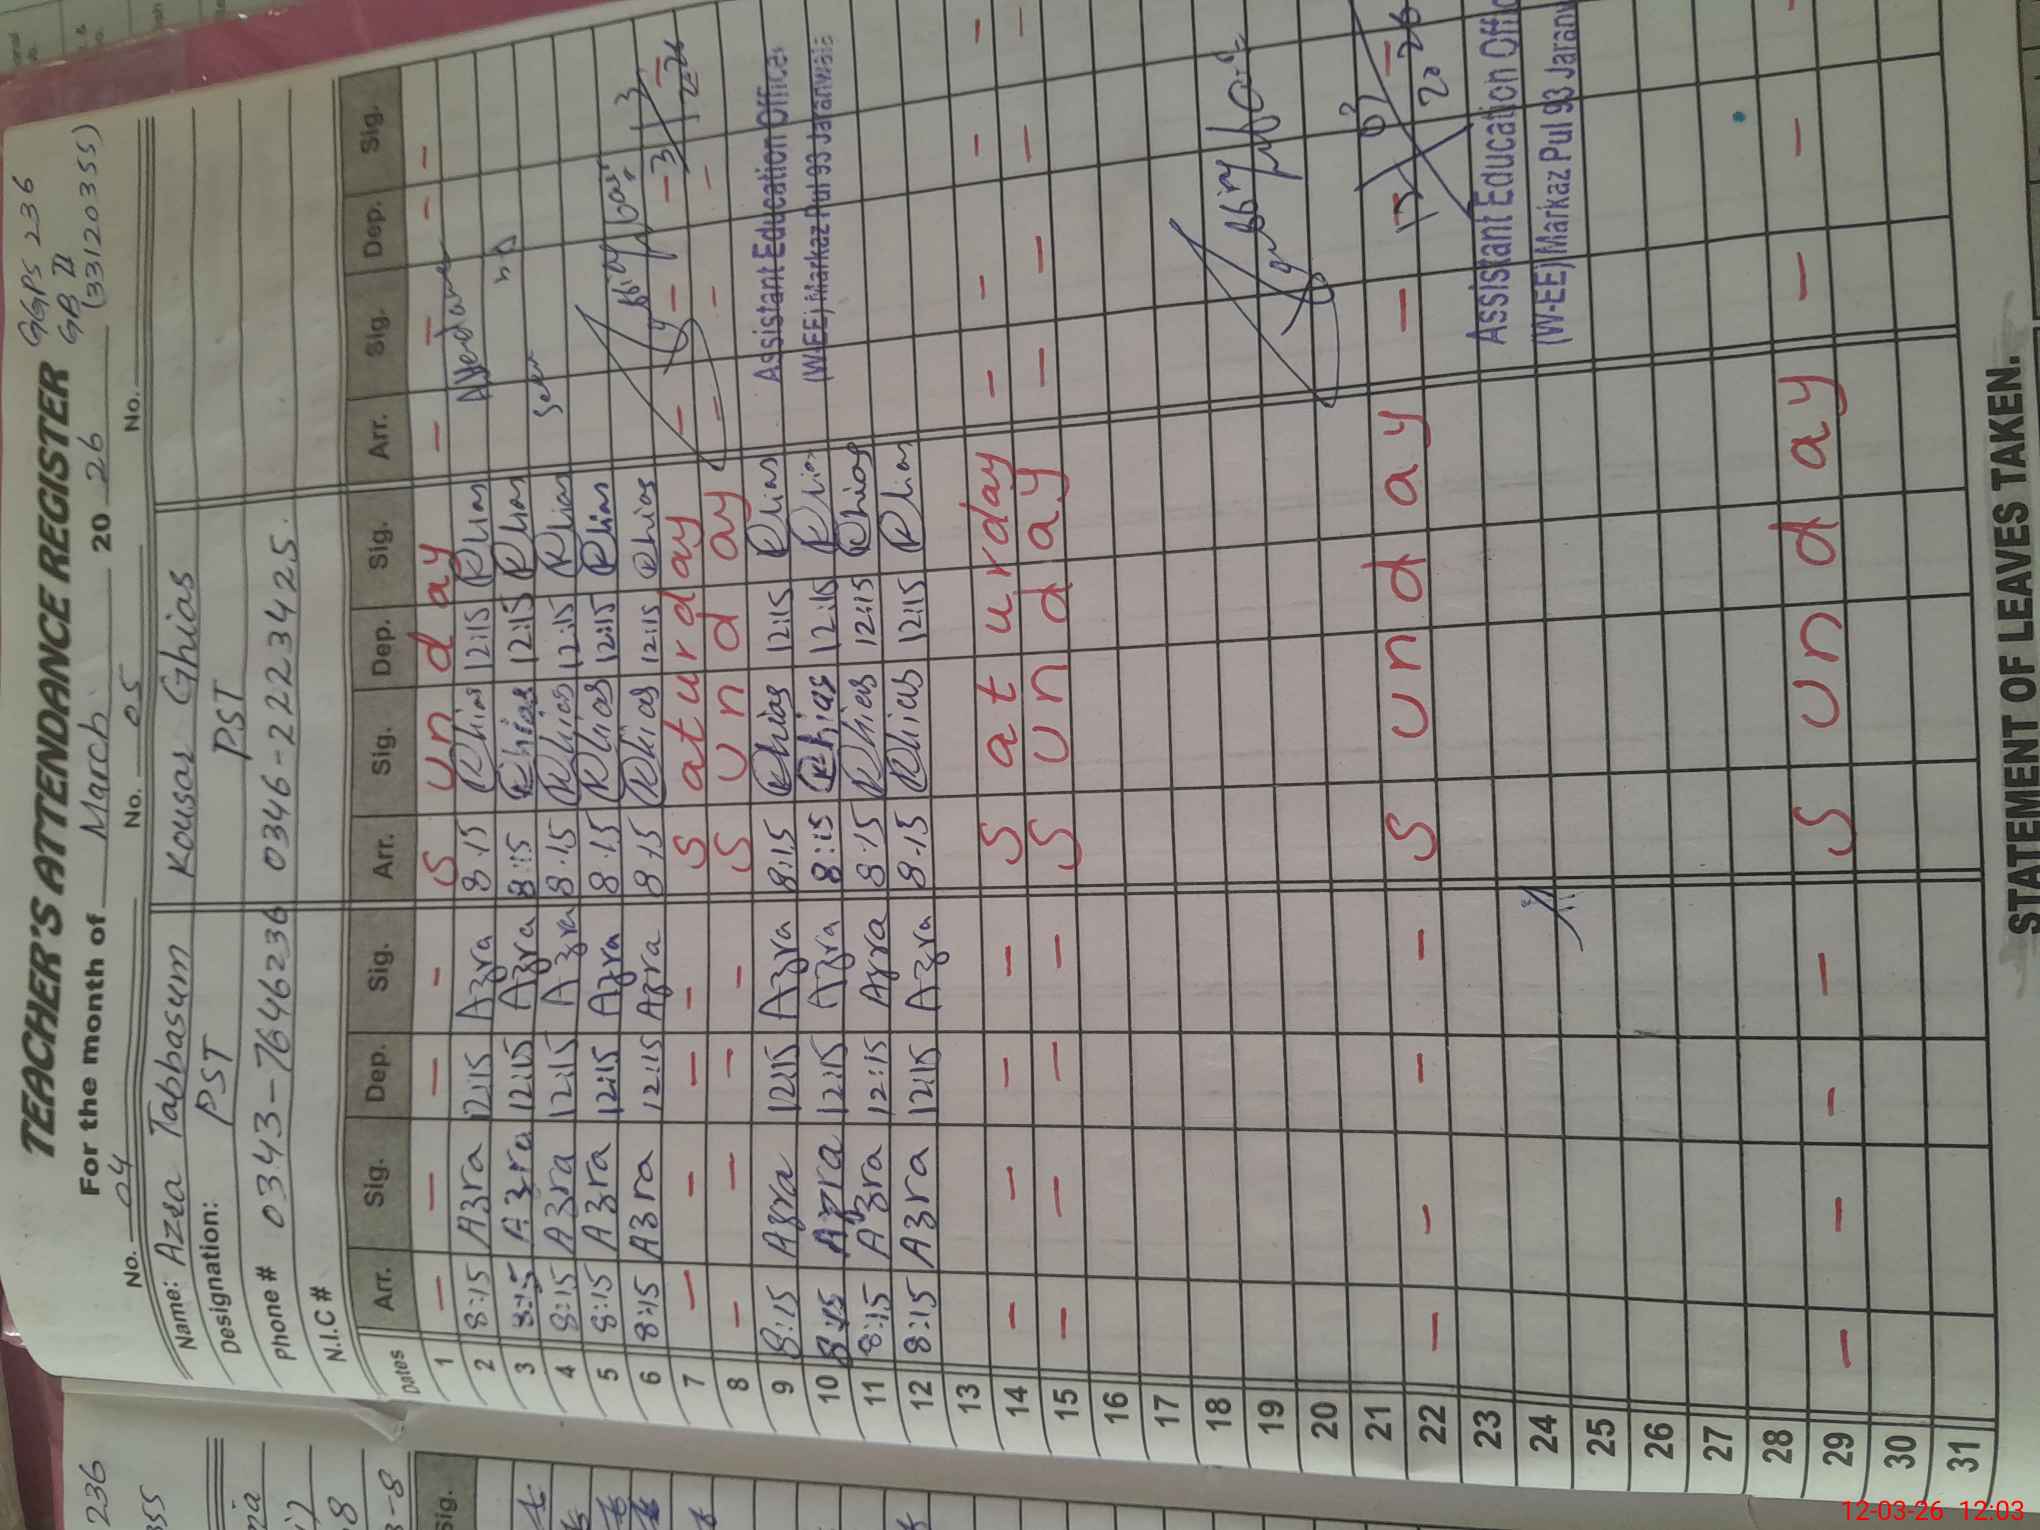 TEACHER'S ATTENDANCE REGISTER GGPS 236
GB II
For the month of March 20 26 (33120355)
No. 04 No. 05 No.
Name: Azra Tabbasum Kousar Ghias
Designation: PST PST
Phone # 0343-7646236 0346-2223425
N.I.C #
Dates Arr. Sig. Dep. Sig. Arr. Sig. Dep. Sig. Arr. Sig. Dep. Sig.
1 - - - - S u n d a y - - - -
2 8:15 Azra 12:15 Azra 8:15 Khias 12:15 Khias
3 8:15 Azra 12:15 Azra 8:15 Khias 12:15 Khias
4 8:15 Azra 12:15 Azra 8:15 Khias 12:15 Khias
5 8:15 Azra 12:15 Azra 8:15 Khias 12:15 Khias
6 8:15 Azra 12:15 Azra 8:15 Khias 12:15 Khias
7 - - - - S a t u r d a y - - - -
8 - - - - S u n d a y - - - -
9 8:15 Azra 12:15 Azra 8:15 Khias 12:15 Khias Assistant Education Officer
10 8:15 Azra 12:15 Azra 8:15 Khias 12:15 Khias (W-EE) Markaz Pul 93 Jaranwala
11 8:15 Azra 12:15 Azra 8:15 Khias 12:15 Khias
12 8:15 Azra 12:15 Azra 8:15 Khias 12:15 Khias
13
14 - - - - S a t u r d a y - - - -
15 - - - - S u n d a y - - - -
16
17
18
19
20
21
22 - - - - S u n d a y - - -
23 Assistant Education Offic
24 (W-EE) Markaz Pul 93 Jaranw
25
26
27
28
29 - - - - S u n d a y - - -
30
31
STATEMENT OF LEAVES TAKEN.
236
355
Sig.
12-03-26 12:03